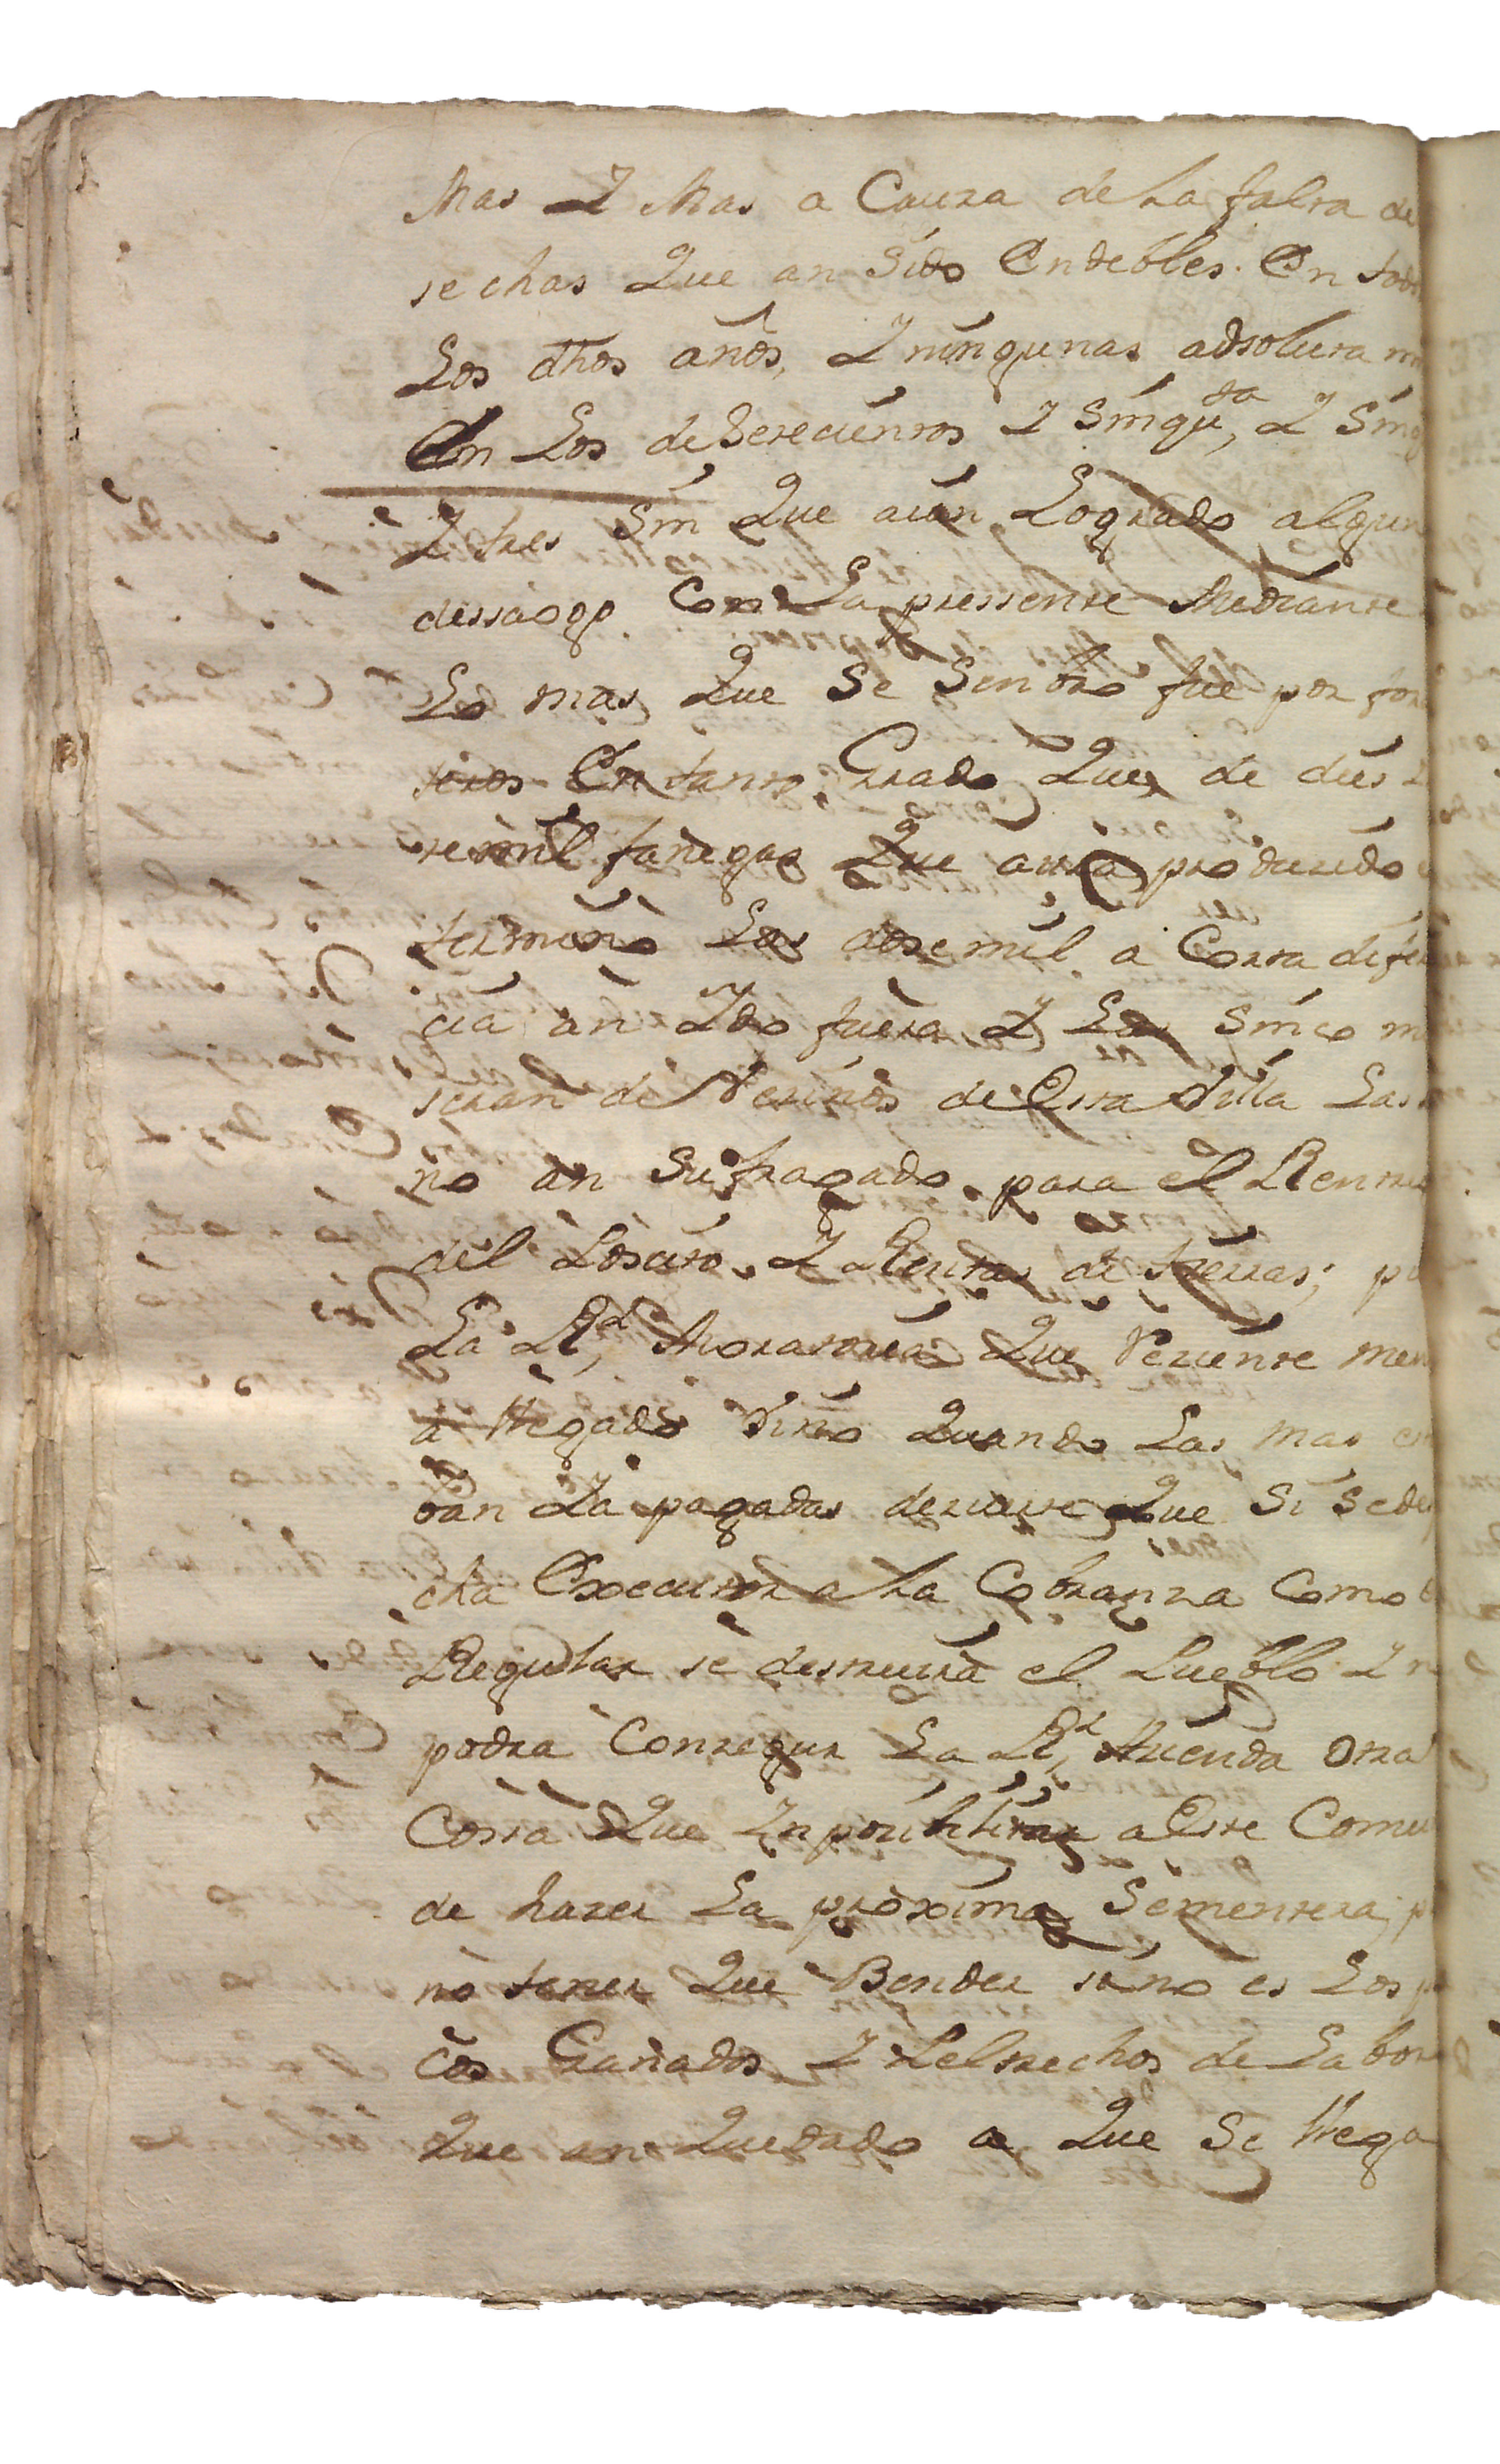 Mas Y Mas a Cauza de La falta de
sechas Que an Sido Endebles. En tod
Los dhos años, Y ningunas absoluta m
En Los de Setecientos Y Sinqu.ta, Y Sinq
Y tres Sin Que aian Logrado algun
dessaogo. Con La pressente Mediante
Lo mas Que Se Senbro fue por for
teros En tanto Grado Que de dies Y
te mil fanegas Que aura produzido
termino Las dose mil a Corta difer
cia an Ydo fuera Y Las Sinco m
seran de Vezinos de Esta Villa Las
no an Sufragado para el Rentre
del Posito Y Rentas de tierras; pu
La Rl, Moratoria Que Reziente men
a llegado Vino Quando Las mas es
ban Ya pagadas de suerte Que Si Se des
cha Executor a La Cobranza Como
Regular se destruira el Pueblo Y n
podra Conseguir La Rl, Azienda otra
Cossa Que Ynposibilitar a Este Comu
de hazer La proxima Sementera, p
no tener Que Bender sino es Los p
cos Ganados Y Peltrechos de Labor
Que an Quedado a Que Se llega